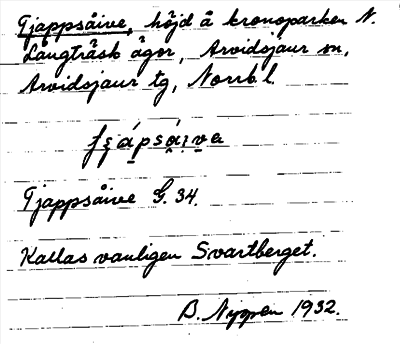 Tjappsåive, höjd å kronoparken N.
Långträsk ägor, Arvidsjaur sn,
Arvidsjaur tg, Norrb l.
Tjappsåive G. 34.
Kallas vanligen Svartberget.
B. Nyman 1932.